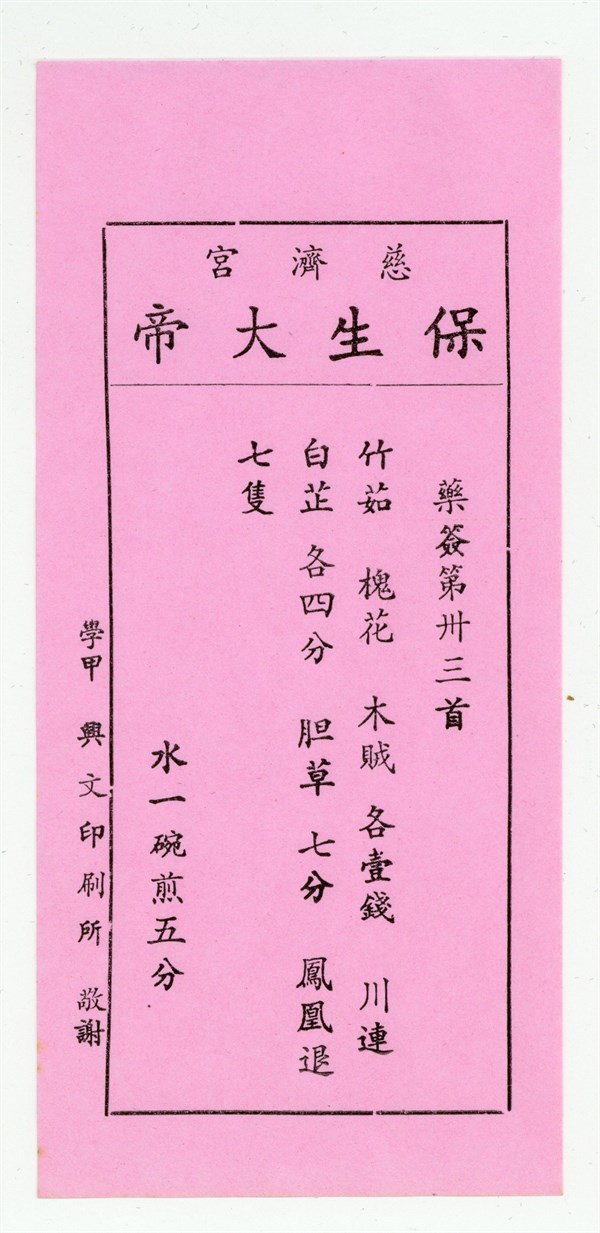 慈濟宮
保生大帝
藥簽第卅三首
竹茹 槐花 木賊 各壹錢 川連
白芷 各四分 胆草 七分 鳳凰退
七隻
水一碗煎五分
學甲 興文印刷所 敬謝